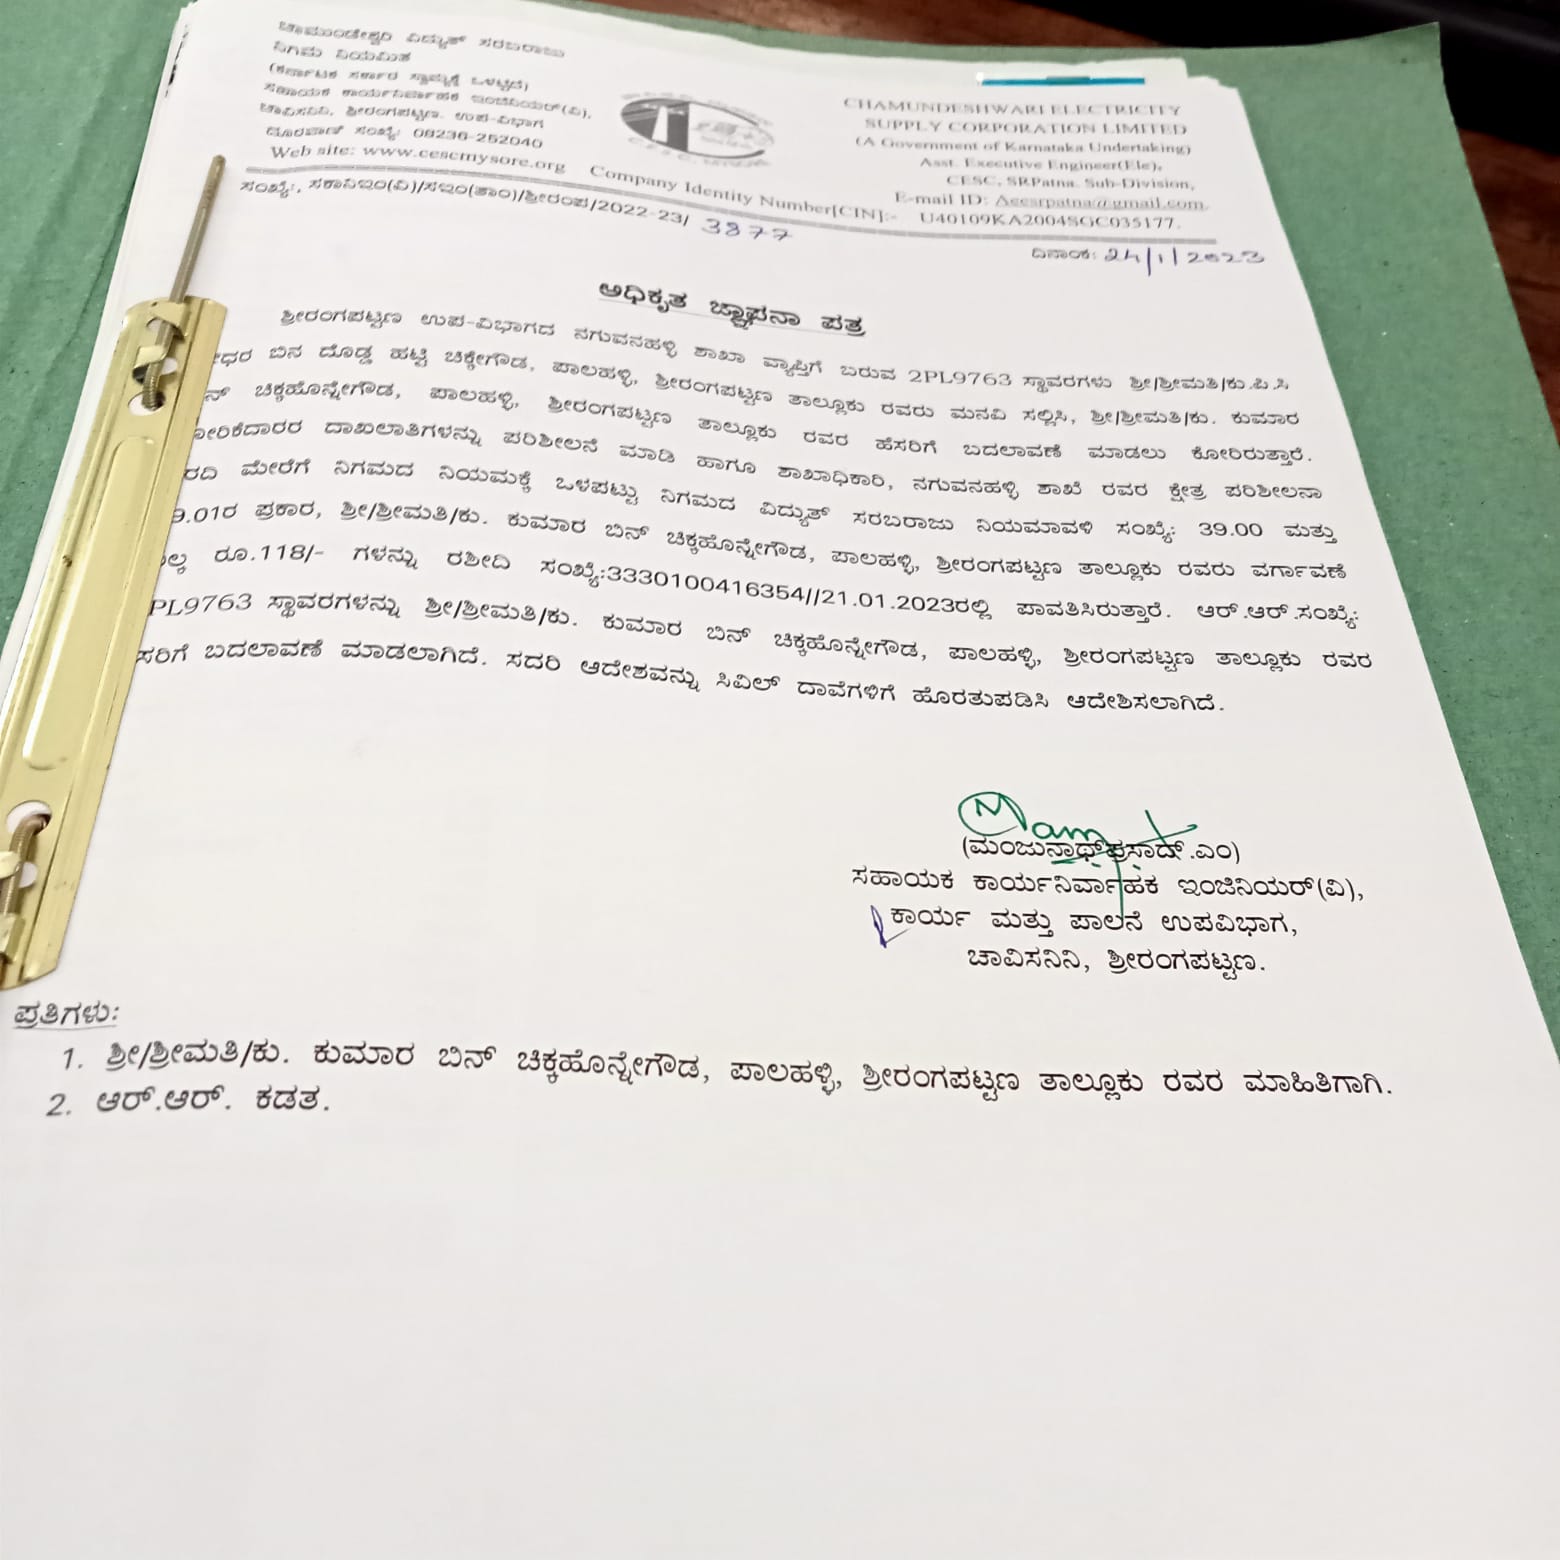 ಚಾಮುಂಡೇಶ್ವರಿ ವಿದ್ಯುತ್ ಸರಬರಾಜು
ನಿಗಮ ನಿಯಮಿತ
(ಕರ್ನಾಟಕ ಸರ್ಕಾರ ಸ್ವಾಮ್ಯಕ್ಕೆ ಒಳಪಟ್ಟಿದೆ)
ಸಹಾಯಕ ಕಾರ್ಯನಿರ್ವಾಹಕ ಇಂಜಿನಿಯರ್(ವಿ),
ಚಾವಿಸನಿನಿ, ಶ್ರೀರಂಗಪಟ್ಟಣ. ಉಪ-ವಿಭಾಗ
ದೂರವಾಣಿ ಸಂಖ್ಯೆ: 08236-252040
Web site: www.cescmysore.org
CHAMUNDESHWARI ELECTRICITY
SUPPLY CORPORATION LIMITED
(A Government of Karnataka Undertaking)
Asst. Executive Engineer(Ele),
CESC, SRPatna. Sub-Division,
E-mail ID: Aeesrpatna@gmail.com.
Company Identity Number[CIN]:- U40109KA2004SGC035177.
ಸಂಖ್ಯೆ:, ಸಕಾನಿಇಂ(ವಿ)/ಸಇಂ(ತಾಂ)/ಶ್ರೀರಂಪ/2022-23/ 3877
ದಿನಾಂಕ: 24/1/2023
ಅಧಿಕೃತ ಜ್ಞಾಪನಾ ಪತ್ರ
ಶ್ರೀರಂಗಪಟ್ಟಣ ಉಪ-ವಿಭಾಗದ ನಗುವನಹಳ್ಳಿ ಶಾಖಾ ವ್ಯಾಪ್ತಿಗೆ ಬರುವ 2PL9763 ಸ್ಥಾವರಗಳು ಶ್ರೀ/ಶ್ರೀಮತಿ/ಕು.ಪಿ.ಸಿ
ಧರ ಬಿನ ದೊಡ್ಡ ಹಟ್ಟಿ ಚಿಕ್ಕೇಗೌಡ, ಪಾಲಹಳ್ಳಿ, ಶ್ರೀರಂಗಪಟ್ಟಣ ತಾಲ್ಲೂಕು ರವರು ಮನವಿ ಸಲ್ಲಿಸಿ, ಶ್ರೀ/ಶ್ರೀಮತಿ/ಕು. ಕುಮಾರ
ನ್ ಚಿಕ್ಕಹೊನ್ನೇಗೌಡ, ಪಾಲಹಳ್ಳಿ, ಶ್ರೀರಂಗಪಟ್ಟಣ ತಾಲ್ಲೂಕು ರವರ ಹೆಸರಿಗೆ ಬದಲಾವಣೆ ಮಾಡಲು ಕೋರಿರುತ್ತಾರೆ.
ೋರಿಕೆದಾರರ ದಾಖಲಾತಿಗಳನ್ನು ಪರಿಶೀಲನೆ ಮಾಡಿ ಹಾಗೂ ಶಾಖಾಧಿಕಾರಿ, ನಗುವನಹಳ್ಳಿ ಶಾಖೆ ರವರ ಕ್ಷೇತ್ರ ಪರಿಶೀಲನಾ
ರದಿ ಮೇರೆಗೆ ನಿಗಮದ ನಿಯಮಕ್ಕೆ ಒಳಪಟ್ಟು ನಿಗಮದ ವಿದ್ಯುತ್ ಸರಬರಾಜು ನಿಯಮಾವಳಿ ಸಂಖ್ಯೆ: 39.00 ಮತ್ತು
9.01ರ ಪ್ರಕಾರ, ಶ್ರೀ/ಶ್ರೀಮತಿ/ಕು. ಕುಮಾರ ಬಿನ್ ಚಿಕ್ಕಹೊನ್ನೇಗೌಡ, ಪಾಲಹಳ್ಳಿ, ಶ್ರೀರಂಗಪಟ್ಟಣ ತಾಲ್ಲೂಕು ರವರು ವರ್ಗಾವಣೆ
ಲ್ಕ ರೂ.118/- ಗಳನ್ನು ರಶೀದಿ ಸಂಖ್ಯೆ:3330100416354//21.01.2023ರಲ್ಲಿ ಪಾವತಿಸಿರುತ್ತಾರೆ. ಆರ್.ಆರ್.ಸಂಖ್ಯೆ:
PL9763 ಸ್ಥಾವರಗಳನ್ನು ಶ್ರೀ/ಶ್ರೀಮತಿ/ಕು. ಕುಮಾರ ಬಿನ್ ಚಿಕ್ಕಹೊನ್ನೇಗೌಡ, ಪಾಲಹಳ್ಳಿ, ಶ್ರೀರಂಗಪಟ್ಟಣ ತಾಲ್ಲೂಕು ರವರ
ಸರಿಗೆ ಬದಲಾವಣೆ ಮಾಡಲಾಗಿದೆ. ಸದರಿ ಆದೇಶವನ್ನು ಸಿವಿಲ್ ದಾವೆಗಳಿಗೆ ಹೊರತುಪಡಿಸಿ ಆದೇಶಿಸಲಾಗಿದೆ.
(ಮಂಜುನಾಥ್‌ಪ್ರಸಾದ್.ಎಂ)
ಸಹಾಯಕ ಕಾರ್ಯನಿರ್ವಾಹಕ ಇಂಜಿನಿಯರ್(ವಿ),
ಕಾರ್ಯ ಮತ್ತು ಪಾಲನೆ ಉಪವಿಭಾಗ,
ಚಾವಿಸನಿನಿ, ಶ್ರೀರಂಗಪಟ್ಟಣ.
ಪ್ರತಿಗಳು:
1. ಶ್ರೀ/ಶ್ರೀಮತಿ/ಕು. ಕುಮಾರ ಬಿನ್ ಚಿಕ್ಕಹೊನ್ನೇಗೌಡ, ಪಾಲಹಳ್ಳಿ, ಶ್ರೀರಂಗಪಟ್ಟಣ ತಾಲ್ಲೂಕು ರವರ ಮಾಹಿತಿಗಾಗಿ.
2. ಆರ್.ಆರ್. ಕಡತ.